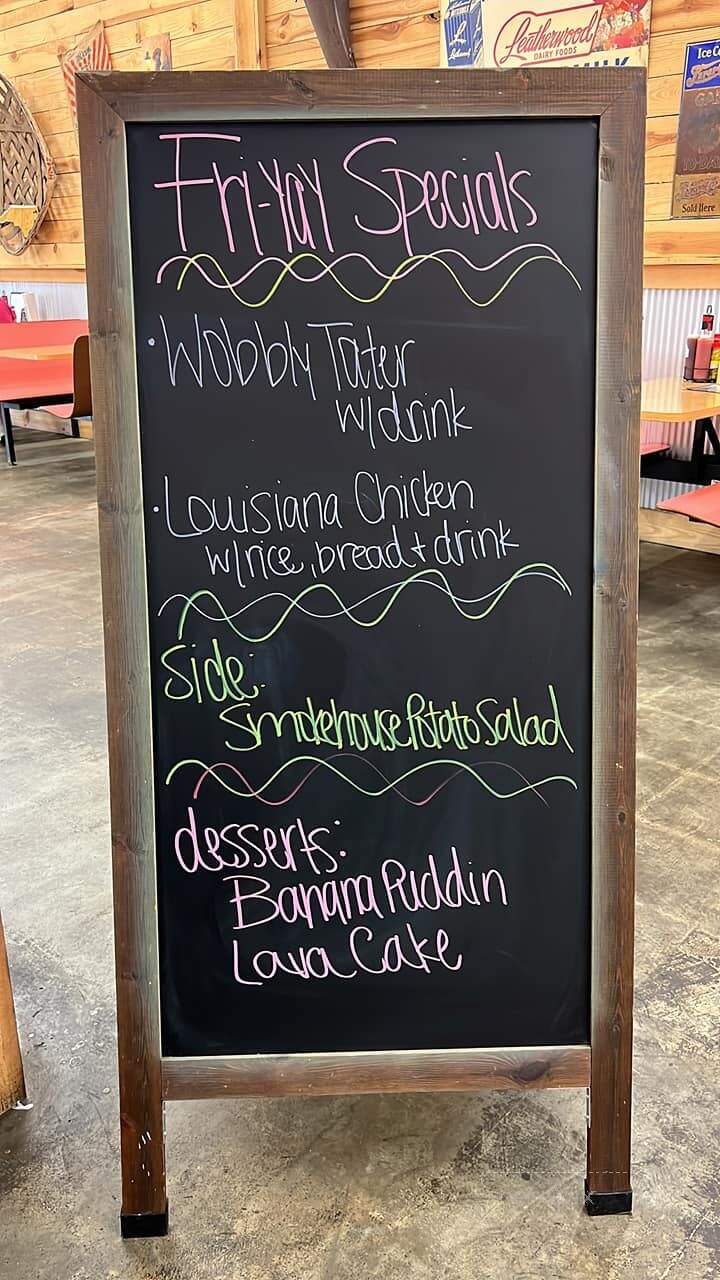 Leatherwood
DAIRY FOODS
MILK
Ice C
Sold Here
Fri-Yay Specials
• Wobbly Tater
w/drink
• Louisiana Chicken
w/rice, bread + drink
Side:
Smokehouse Potato Salad
desserts:
Banana Puddin
Lava Cake